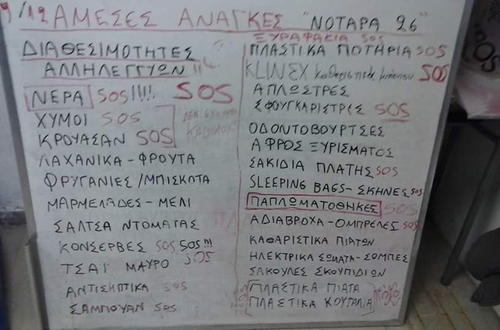 9/12 ΑΜΕΣΕΣ ΑΝΑΓΚΕΣ "ΝΟΤΑΡΑ 26"
ΔΙΑΘΕΣΙΜΟΤΗΤΕΣ
ΑΛΛΗΛΕΓΓΥΩΝ !!
ΝΕΡΑ SOS!!!! SOS
ΧΥΜΟΙ SOS
ΚΡΟΥΑΣΑΝ SOS
ΛΑΧΑΝΙΚΑ - ΦΡΟΥΤΑ
ΦΡΥΓΑΝΙΕΣ / ΜΠΙΣΚΟΤΑ
ΜΑΡΜΕΛΑΔΕΣ - ΜΕΛΙ
ΣΑΛΤΣΑ ΝΤΟΜΑΤΑΣ
ΚΟΝΣΕΡΒΕΣ SOS SOS !!!
ΤΣΑΪ ΜΑΥΡΟ SOS
ΑΝΤΙΣΗΠΤΙΚΑ SOS
ΣΑΜΠΟΥΑΝ SOS
ΞΥΡΑΦΑΚΙΑ SOS
ΠΛΑΣΤΙΚΑ ΠΟΤΗΡΙΑ SOS
KLINEX SOS
ΑΠΛΩΣΤΡΕΣ
ΣΦΟΥΓΚΑΡΙΣΤΡΕΣ SOS
ΟΔΟΝΤΟΒΟΥΡΤΣΕΣ
ΑΦΡΟΣ ΞΥΡΙΣΜΑΤΟΣ
ΣΑΚΙΔΙΑ ΠΛΑΤΗΣ SOS
SLEEPING BAGS - ΣΚΗΝΕΣ SOS
ΠΑΠΛΩΜΑΤΟΘΗΚΕΣ SOS
ΑΔΙΑΒΡΟΧΑ - ΟΜΠΡΕΛΕΣ SOS
ΚΑΘΑΡΙΣΤΙΚΑ ΠΙΑΤΩΝ
ΗΛΕΚΤΡΙΚΑ ΣΩΜΑΤΑ - ΣΟΜΠΕΣ
ΣΑΚΟΥΛΕΣ ΣΚΟΥΠΙΔΙΩΝ
ΠΛΑΣΤΙΚΑ ΠΙΑΤΑ
ΠΛΑΣΤΙΚΑ ΚΟΥΤΑΛΙΑ